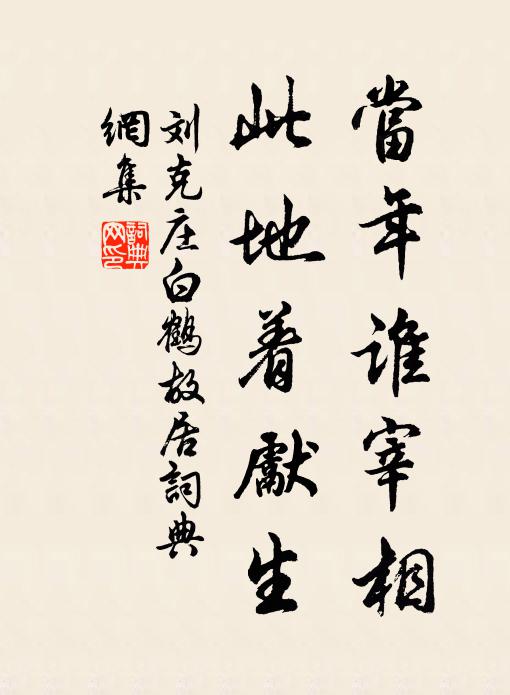 當年誰宰相
此地着獻生
刘克庄白鶴故居詞典
網集
詞典网印